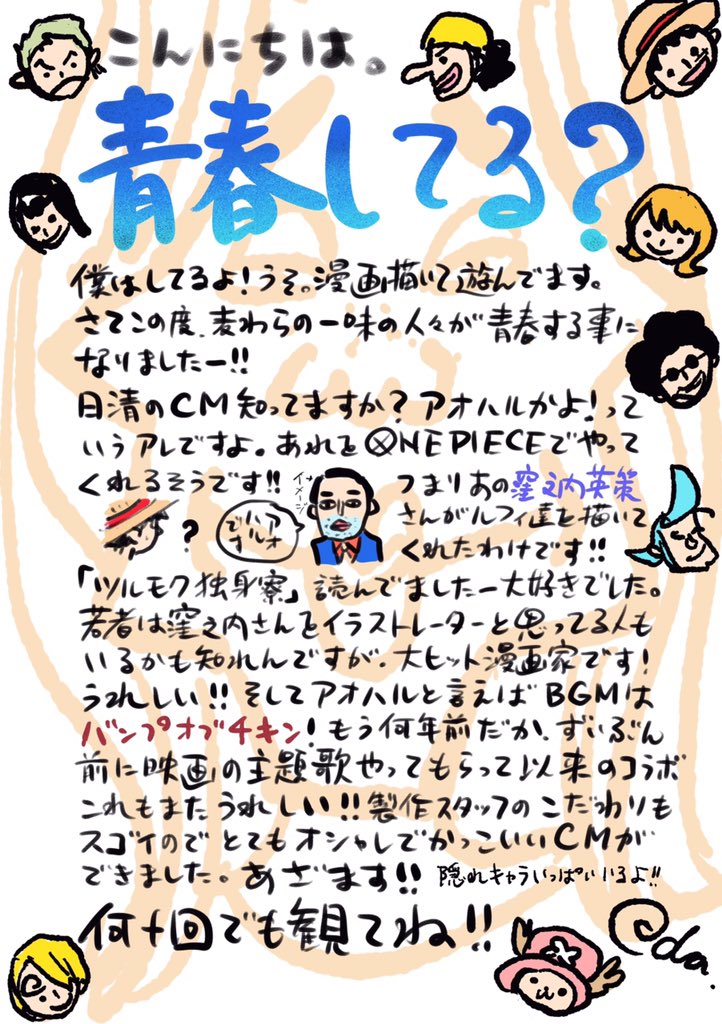 こんにちは。
青春してる?
僕はしてるよ!うそ。漫画描いて遊んでます。
さてこの度、麦わらの一味の人々が青春する事に
なりましたー!!
日清のCM知ってますか?アオハルかよ!って
いうアレですよ。あれをONE PIECEでやって
くれるそうです!!
イメージ
?
アオハルです
つまりあの窪之内英策
さんがルフィ達を描いて
くれたわけです!!
「ツルモク独身寮」読んでましたー大好きでした。
若者は窪之内さんをイラストレーターと思ってる人も
いるかも知れんですが、大ヒット漫画家です!
うれしい!!そしてアオハルと言えばBGMは
バンプオブチキン!もう何年前だか、ずいぶん
前に映画の主題歌やってもらって以来のコラボ
これもまたうれしい!!製作スタッフのこだわりも
スゴイのでとてもオシャレでかっこいいCMが
できました。あざます!!隠れキャラいっぱいいるよ!!
何十回でも観てね!!
Oda.